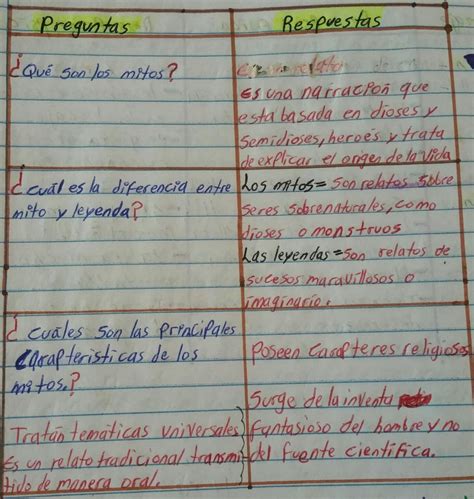 Preguntas
Respuestas
¿Qué son los mitos?
es una narración que
esta basada en dioses y
semidioses, heroes y trata
de explicar el origen de la vida
¿cuál es la diferencia entre
mito y leyenda?
Los mitos= son relatos sobre
seres sobrenaturales, como
dioses o monstruos
Las leyendas=son relatos de
sucesos maravillosos o
imaginario.
¿ cuales son las principales
carapteristicas de los
mitos.?
Poseen carapteres religiosos
Surge de la inventa
fantasioso del hombre y no
del fuente científica.
Tratan temáticas universales
Es un relato tradicional transmi-
tido de manera oral.